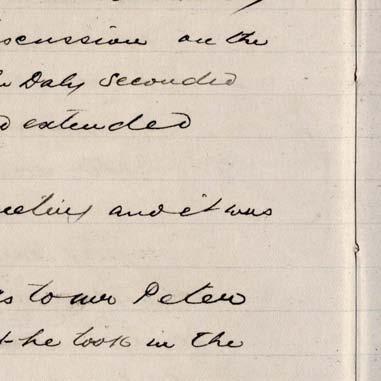 discussion on the
Daly seconded
extended
meeting and it was
to mr Peter
he took in the